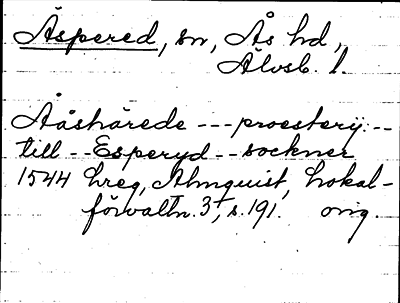 Äspered, sn, Ås hd,
Älvsb. l.
Aåshärede --- proesterij ---
till -- Esperyd -- sockner
1544 hreg, Almquist, Lokal-
förvaltn. 3, s. 191. orig.